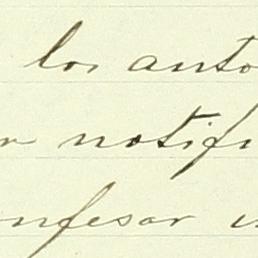 los auto
notifi
onfesar